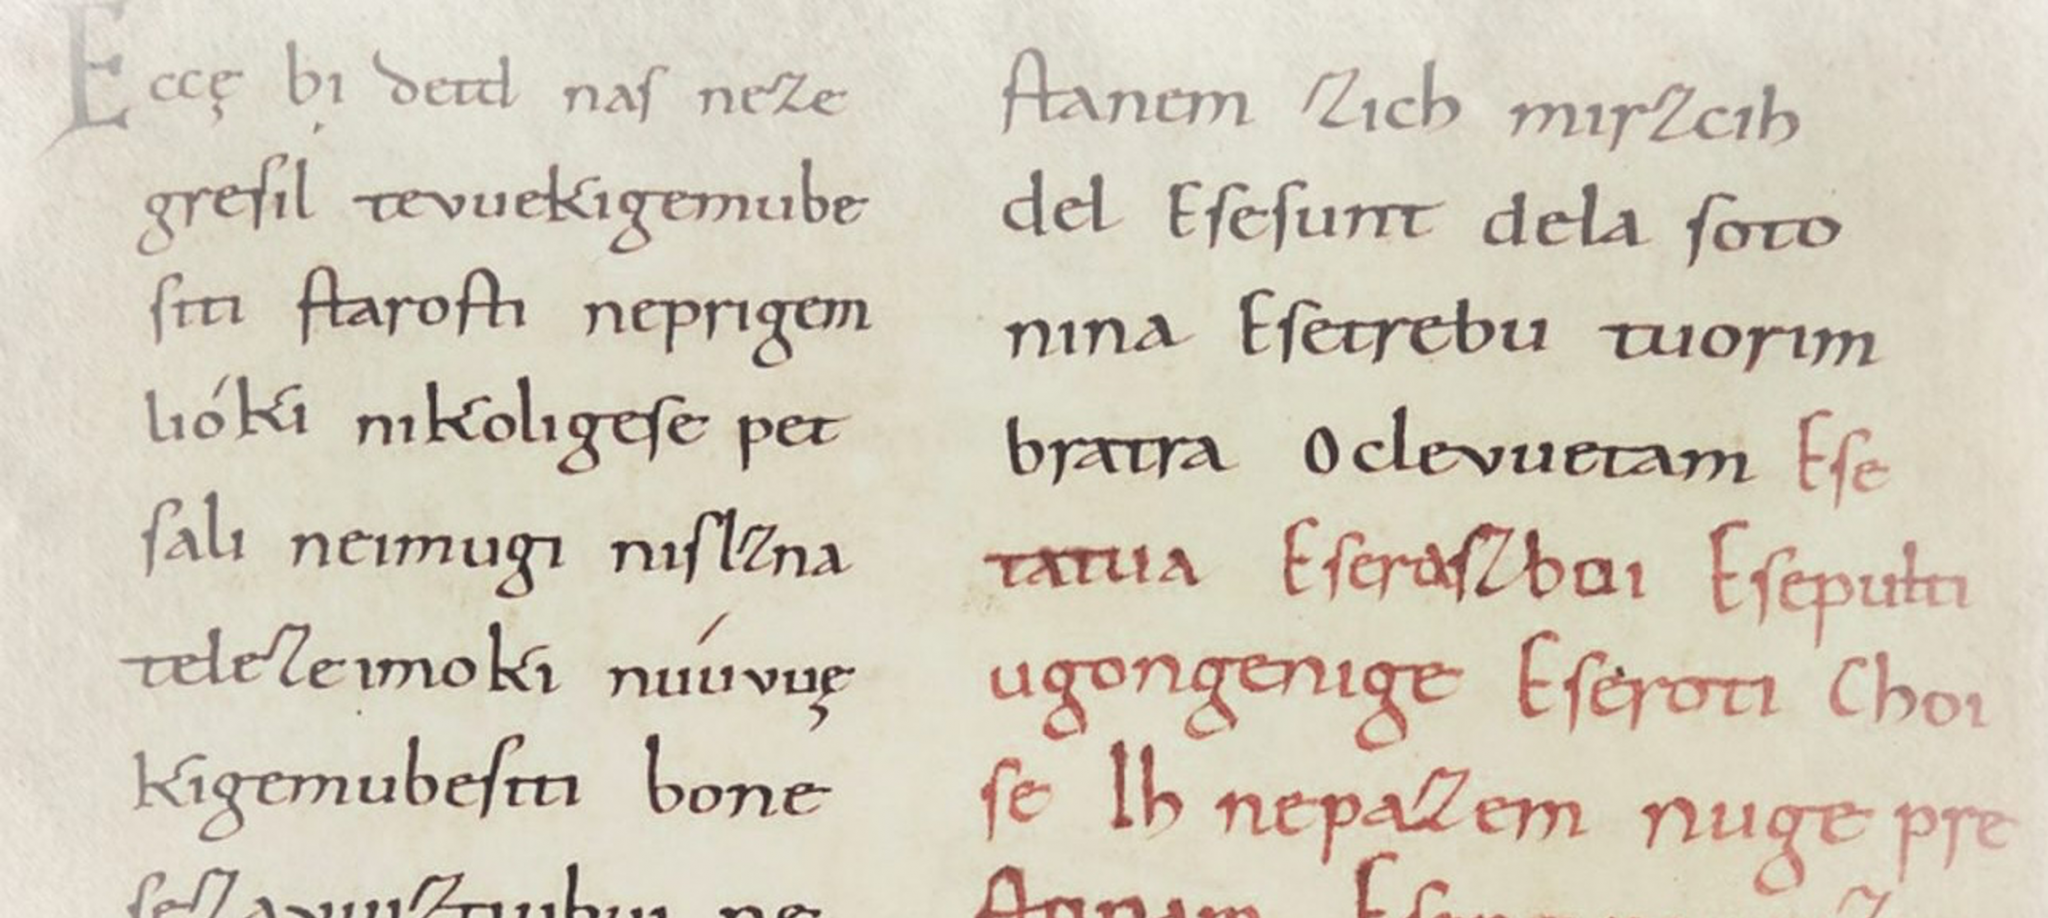 Eccę bi detd naſ neze
greſil tevuekigemube
ſiti ſtaroſti neprigem
lióki nikoligeſe pet
ſali neimugi niſlzna
telezeimoki nuúvuę
kigemubeſiti bone
ſtanem zich mirzcih
del Eſeſunt dela ſoto
nina Eſetrebu tuorim
bratra Oclevuetam Eſe
tatua Eſeraſzboi Eſepulti
ugongenige Eſeroti Choi
ſe lh nepazem nuge pre